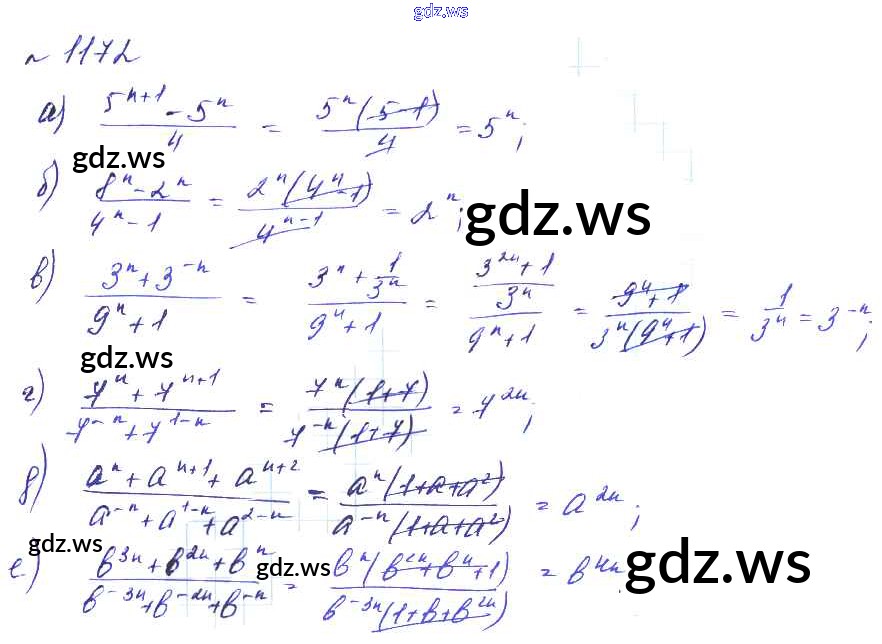 gdz.ws
№ 1172
а) (5^(n+1) - 5^n)/4 = 5^n(5-1)/4 = 5^n;
gdz.ws
б) (8^n - 2^n)/(4^n - 1) = 2^n(4^n - 1)/4^(n-1) = 2^n;
gdz.ws
в) (3^n + 3^(-n))/(9^n + 1) = (3^n + 1/3^n)/(9^n + 1) = ((3^(2n) + 1)/3^n)/(9^n + 1) = (9^n + 1)/(3^n(9^n + 1)) = 1/3^n = 3^(-n);
gdz.ws
г) (7^n + 7^(n+1))/(7^(-n) + 7^(1-n)) = 7^n(1+7)/(7^(-n)(1+7)) = 7^(2n);
д) (a^n + a^(n+1) + a^(n+2))/(a^(-n) + a^(1-n) + a^(2-n)) = a^n(1+a+a^2)/(a^(-n)(1+a+a^2)) = a^(2n);
gdz.ws
е) (b^(3n) + b^(2n) + b^n)/(b^(-3n) + b^(-2n) + b^(-n)) = b^n(b^(2n) + b^n + 1)/(b^(-3n)(1 + b + b^(2n))) = b^(4n);
gdz.ws
gdz.ws